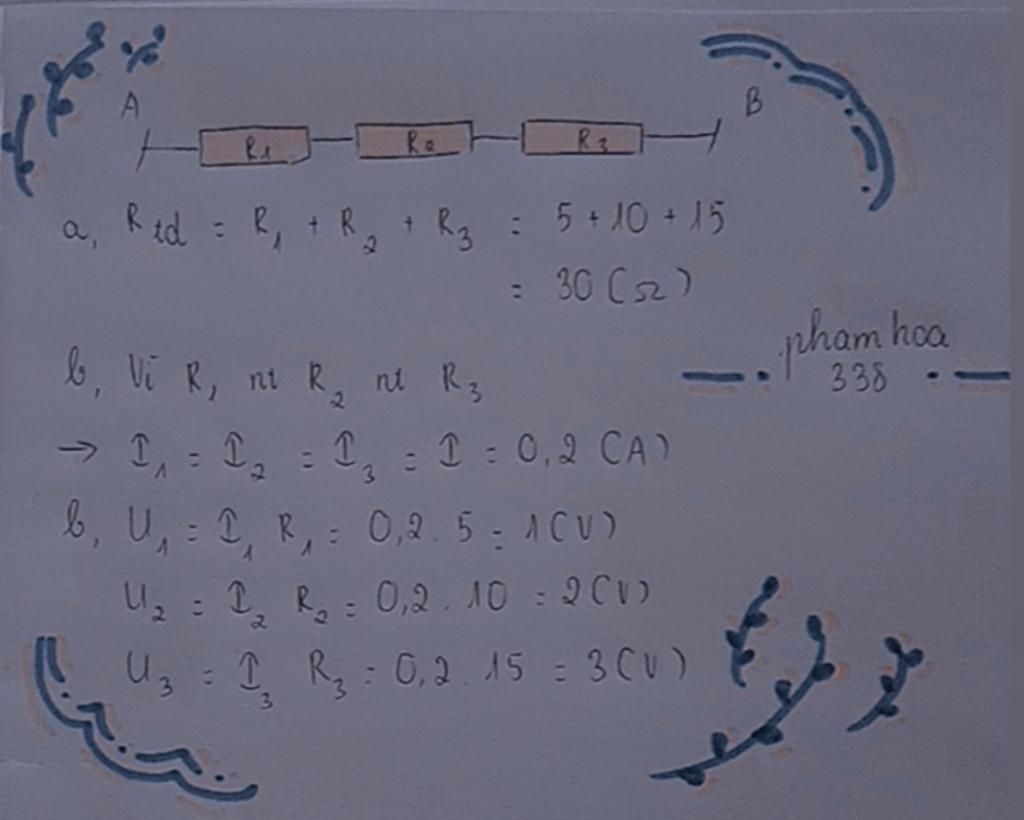 A B
R1 R2 R3
a, Rtd = R1 + R2 + R3 = 5 + 10 + 15
= 30 (Ω)
phamhoa
338
b, Vì R1 nt R2 nt R3
→ I1 = I2 = I3 = I = 0,2 (A)
b, U1 = I1 R1 = 0,2 . 5 = 1 (V)
U2 = I2 R2 = 0,2 . 10 = 2 (V)
U3 = I3 R3 = 0,2 . 15 = 3 (V)